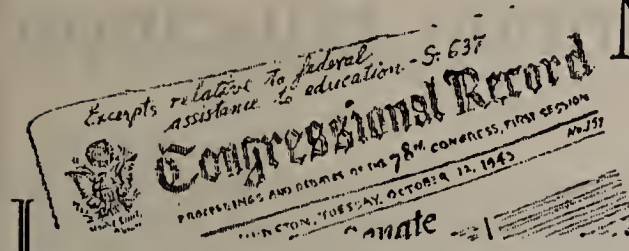 Excerpts relative to federal
assistance to education - S. 637
Congressional Record
PROCEEDINGS AND DEBATES OF THE 78TH CONGRESS, FIRST SESSION
TUESDAY, OCTOBER 12, 1943